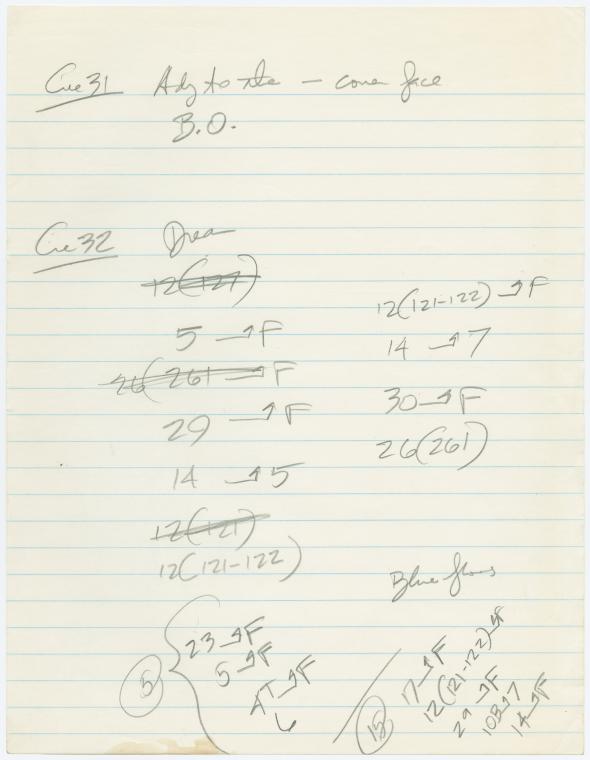 Cue 31 Adg to — cover face
B.O.
Cue 32
12(127)
5 → F
26(261 → F
29 → F
14 → 5
12(121)
12(121-122)
12(121-122) → F
14 → 7
30 → F
26(261)
Blue
5
23 → F
5 → F
AT → F
6
15
17 → F
12(121-122) → F
29 → F
10B → 7
14 → F